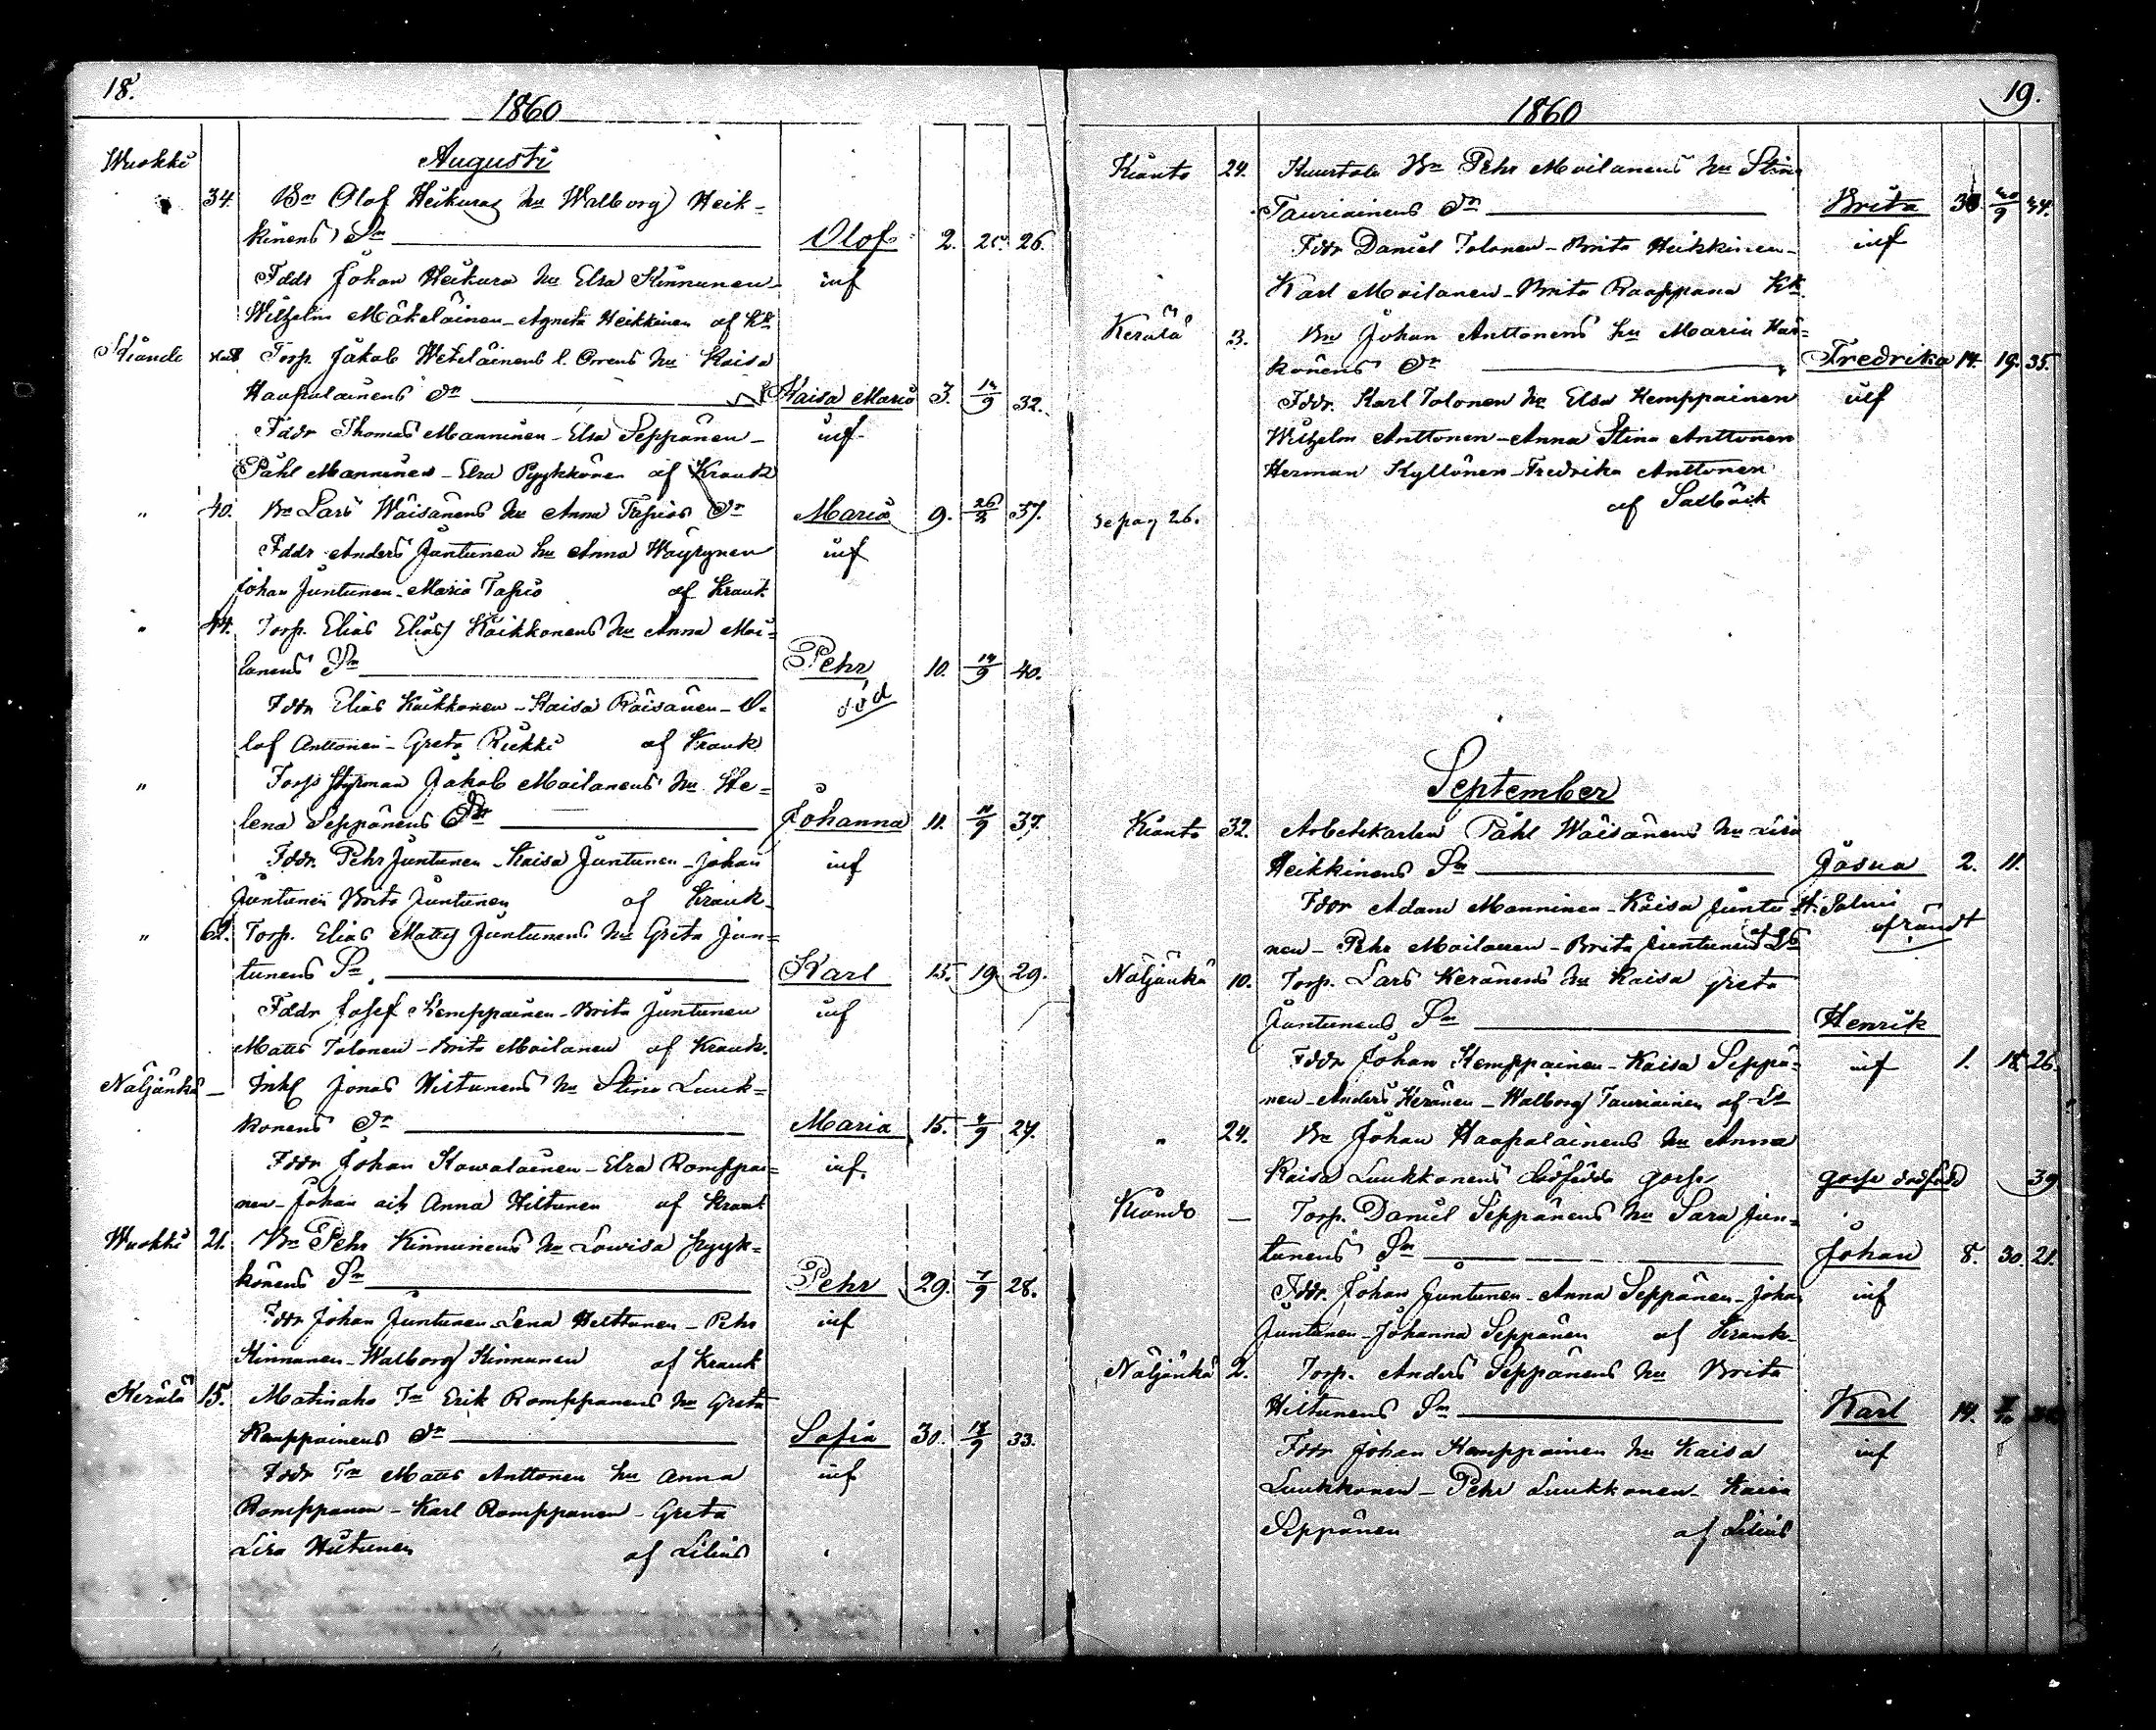 18.
1860
Wuokki
Augusti
34. Bn Olof Heikuras hu Walborg Heik-
kinens Sn Olof 2. 25. 26.
Fddr Johan Heikura hu Elsa Kinnunen inf
Wilhelm Mökeläinen - Agneta Heikkinen af Kk
Kiando Torp Jakob Weteläinens l. Orrens hu Kaisa
Haapalainens Dr Kaisa Maria 3. 12/9 32.
Fddr Thomas Manninen - Elsa Seppänen - inf
Påhl Manninen - Elsa Pyykkönen af Krank
" 40. Bn Lars Wäisänens hu Anna Tapios Dr Maria 9. 26/8 37.
Fddr Anders Juntunen hu Anna Wäyrynen inf
Johan Juntunen - Maria Tapio af Krank
" 44. Torp. Elias Eliass Kaikkonens hu Anna Moi=
lanens Sn Pehr 10. 14/9 40.
Fddr Elias Kaikkonen - Kaisa Räisänen - O= död
lof Anttonen - Greta Riekki af Krank
" Torp Styrman Jakob Moilanens hu He=
lena Seppänens Dr Johanna 11. 11/9 37.
Fddr. Pehr Juntunen - Kaisa Juntunen - Johan inf
Juntunen Brita Juntunen af Krank-
" 62. Torp. Elias Mattss Juntunens hu Greta Jun=
tunens Sn Karl 15. 19. 29.
Fddr Josef Kemppainen - Brita Juntunen inf
Matts Tolonen - Brita Moilanen af Krank.
Näljänkä - Inh Jonas Hiltunens hu Stina Luuk=
konens Dr Maria 15. 4/9 27.
Fddr Johan Kowalainen - Elsa Romppai= inf.
nen - Johan och Anna Hiltunen af Krank
Wuokki 21. Bn Pehr Kinnunens hu Lowisa Pyyk=
könens Sn Pehr 29. 7/9 28.
Fddr Johan Juntunen Lena Heikkinen - Pehr inf
Kinnunen - Walborg Kinnunen af Krank
Kerälä 15. Matinaho Tn Erik Romppanens hu Greta
Kemppainens Dr Sofia 30. 18/9 33.
Fddr Tn Matts Anttonen hu Anna inf
Romppanen - Karl Romppanen - Greta
Lisa Hiltunen af Lilius
19.
1860
Kianto 24. Bn Pehr Moilanens hu Stina
Tauriainens Dr Brita 30. 20/9 34.
Fddr Daniel Tolonen - Brita Heikkinen - inf
Karl Moilanen - Brita Raappana Kk.
Kerälä 3. Bn Johan Anttonens hu Maria Här=
könens Dr Fredrika 14. 19. 35.
Fddr. Karl Tolonen hu Elsa Kemppainen inf
Wilhelm Anttonen - Anna Stina Anttonen
Herman Kyllönen - Fredrika Anttonen
af Salbäck
se pag 26.
September
Kianto 32. Arbetskarlen Påhl Wäisänens hu Lisa
Heikkinens Sn Josua 2. 11.
Fddr Adam Manninen - Kaisa Juntu H. Salmi
nen - Pehr Moilanen - Brita Juntunen af Ls
Näljänkä 10. Torp. Lars Keränens hu Kaisa Greta
Juntunens Sn Henrik
Fddr Johan Kemppainen - Kaisa Seppä= inf 1. 18. 26.
nen - Anders Keränen - Walborg Tauriainen af Ls
" 24. Bn Johan Haapalainens hu Anna
Kaisa Luukkonens dödfödda gosse gosse dödfödd 39
Kiando - Torp. Daniel Seppänens hu Sara Jun=
tunens Sn Johan 8. 30. 21.
Fddr. Johan Juntunen - Anna Seppänen - Johan inf
Juntunen - Johanna Seppänen af Krank-
Näljänkä 2. Torp. Anders Seppänens hu Brita
Hiltunens Sn Karl 14.
Fddr Johan Kemppainen hu Kaisa inf
Luukkonen - Pehr Luukkonen - Kaisa
Seppänen af Lilius